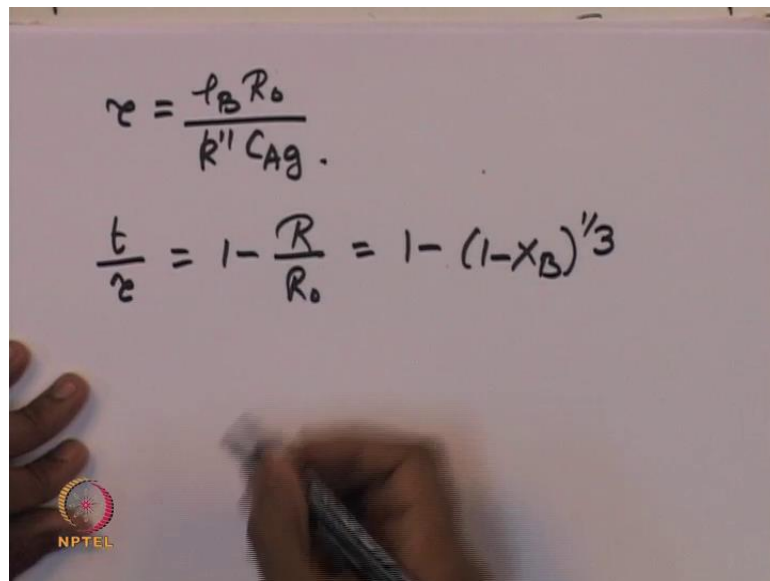 τ = ρ_B R₀ / k'' C_Ag .
t / τ = 1 - R / R₀ = 1 - (1-X_B)^1/3
NPTEL